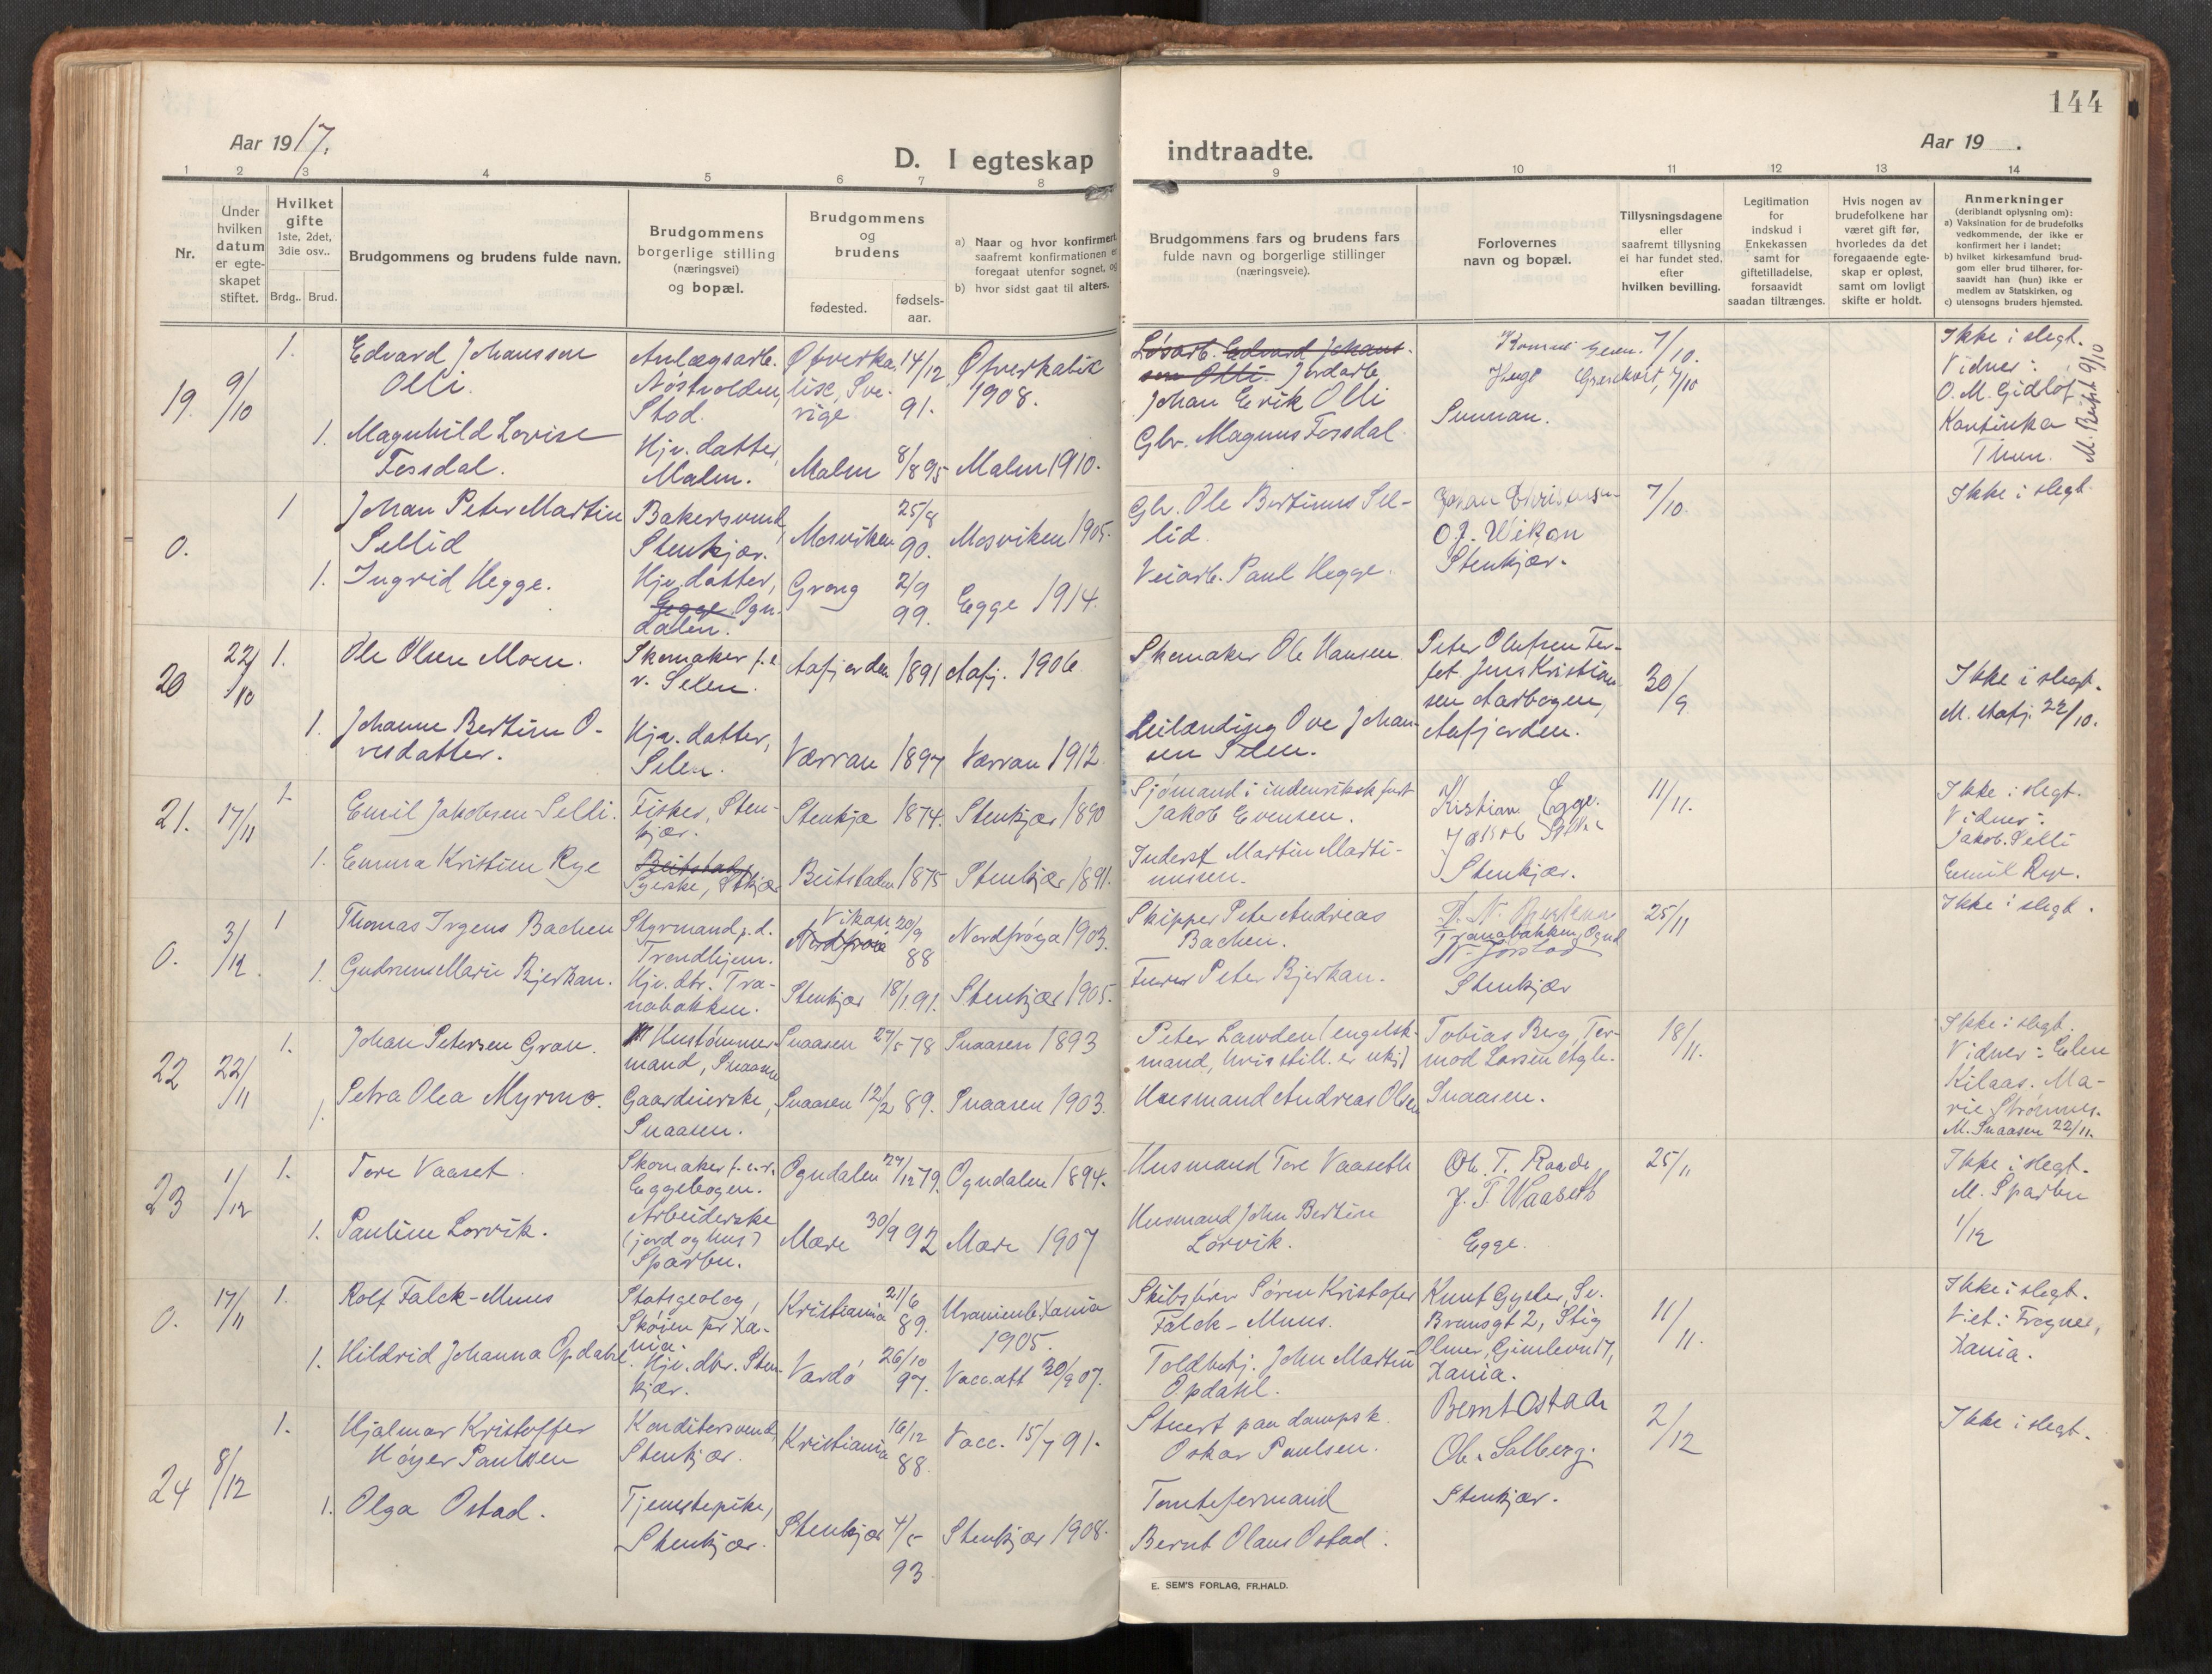 144
Aar 1917.
D. I egteskap
indtraadte.
Aar 19 .
1 2 3 4 5 6 7 8 9 10 11 12 13 14
Nr.
Under
hvilken
datum
er egte-
skapet
stiftet.
Hvilket
gifte
1ste, 2det,
3die osv..
Brdg.. Brud.
Brudgommens og brudens fulde navn.
Brudgommens
borgerlige stilling
(næringsvei)
og bopæl.
Brudgommens
og
brudens
fødested.
fødsels-
aar.
a) Naar og hvor konfirmert,
saafremt konfirmationen er
foregaat utenfor sognet, og
b) hvor sidst gaat til alters.
Brudgommens fars og brudens fars
fulde navn og borgerlige stillinger
(næringsveie).
Forlovernes
navn og bopæl.
Tillysningsdagene
eller
saafremt tillysning
ei har fundet sted,
efter
hvilken bevilling.
Legitimation
for
indskud i
Enkekassen
samt for
giftetilladelse,
forsaavidt
saadan tiltrænges.
Hvis nogen av
brudefolkene har
været gift før,
hvorledes da det
foregaaende egte-
skap er opløst,
samt om lovligt
skifte er holdt.
Anmerkninger
(deriblandt oplysning om):
a) Vaksination for de brudefolks
vedkommende, der ikke er
konfirmert her i landet;
b) hvilket kirkesamfund brud-
gom eller brud tilhører, for-
saavidt han (hun) ikke er
medlem av Statskirken, og
c) utensogns bruders hjemsted.
19. 9/10
1. Edvard Johanssen
Olli.
Anlægsarb.
Nøstvolden,
Stod.
Øfverka-
lix, Sve-
rige
14/12
91.
Øfverkalix
1908.
Løsarb. Edvard Johans-
sen Olli. Jordarb.
Johan Erik Olli
7/10.
7/10
Ikke i slegt.
Vidner:
O. M. Gidlöf
Kantinka
Thun.
1. Magnhild Lovise
Fossdal.
Hjv. datter,
Malm.
Malm 8/8 95 Malm 1910.
Gbr. Magnus Fossdal.
Sunnan.
0.
1 Johan Peter Martin
Sellid
Bakersvend,
Stenkjær.
Mosviken 25/8
90. Mosviken 1905.
Gbr. Ole Bertinus Sel-
lid.
O. J. Wikan
Stenkjær.
7/10.
Ikke i slegt.
1. Ingrid Hegge.
Hjv. datter,
Egge Ogn-
dalen.
Grong 2/9
99. Egge 1914.
Veiarb. Paul Hegge.
20 22/10
1. Ole Olsen Moen.
Skomaker f. e.
r. Selen.
Aafjorden 1891 Aafj. 1906
Skomaker Ole Hansen
Peter Olufsen Ter-
fet. Jens Kristian-
sen Aarbogen,
Aafjorden.
30/9
Ikke i slegt.
M. Aafj. 22/10.
1. Johanne Bertine O-
vesdatter.
Hjv. datter,
Selen.
Værran 1897 Værran 1912.
Leilænding Ove Johan-
sen Selen.
21. 17/11
1. Emil Jakobsen Selli.
Fisker, Sten-
kjær.
Stenkjæ 1874. Stenkjær 1890
Sjømand i indenriksk fart
Jakob Evensen.
Kristian Egge.
Jakob Selli
Stenkjær.
11/11.
Ikke i slegt.
Vidner:
Jakob Selli
Emil Rye.
1. Emma Kristine Rye
Beitstad
Syerske, Stkjær
Beitstaden 1875 Stenkjær 1891.
Inderst Martin Marti-
nusen.
0. 3/12.
1 Thomas Irgens Bachen
Styrmand p. d.
Trondhjem.
Vikan
Nordfrøia
20/9
88
Nordfrøya 1903.
Skipper Peter Andreas
Bachen.
Tranabakken, Ognd
N. Jørstad
Stenkjær
25/11
Ikke i slegt.
1. Gudrun Marie Bjerkan.
Hjv. dtr. Tra-
nabakken.
Stenkjær 18/1 91. Stenkjær 1905.
Furer Peter Bjerkan.
22 22/11
1. Johan Petersen Gran.
Hustømmer-
mand, Snaasen
Snaasen 27/5 78 Snaasen 1893
Peter Lawden (engelsk-
mand, hvis still. er ukj.)
Tobias Berg, Tor-
mod Larsen Agle.
Snaasen.
18/11.
Ikke i slegt.
Vidner: Elen
Kilaas. Ma-
rie Strømnes.
M. Snaasen 22/11.
1. Petra Olea Myrmo.
Gaardeierske,
Snaasen.
Snaasen 12/2 89. Snaasen 1903.
Husmand Andreas Olsen
23 1/12
1. Tore Vaaset.
Skomaker f. e. r.
Eggebogen.
Ogndalen 27/12 79. Ogndalen 1894.
Husmand Tore Vaaseth
Ole T. Raade
J. T. Waaseth
Egge.
25/11
Ikke i slegt.
M. Sparbu
1/12
1. Pauline Lorvik.
Arbeiderske
(jord og hus)
Sparbu.
Mære 30/9 92 Mære 1907
Husmand John Bertin
Lorvik.
0. 17/11
1. Rolf Falck-Muus
Statsgeolog,
Skøien pr Kra-
nia.
Kristiania 21/6
89.
Uranienb. Xania
1905.
Skibsfører Søren Kristofer
Falck-Muus.
Knut Gysler, Sv.
Brunsgt 2, Stig
Olmer, Gimlevn 17,
Xania.
11/11.
Ikke i slegt.
Viet: Frogner,
Xania.
1. Hildrid Johanna Opdahl.
Hjv. dtr. Sten-
kjær.
Vardø 26/10
97. Vacc.att 20/9 07.
Toldbetj. John Martin
Opdahl.
24 8/12
1. Hjalmar Kristoffer
Høyer Paulsen
Konditersvend,
Stenkjær.
Kristiania 16/12
88.
Vacc. 15/7 91.
Stuert paa dampsk.
Oskar Paulsen.
Bernt Ostad
Ole Solberg.
Stenkjær.
2/12
Ikke i slegt.
1. Olga Ostad.
Tjenestepike,
Stenkjær.
Stenkjær 4/5
93
Stenkjær 1908.
Tomteformand
Bernt Olaus Ostad.
E. SEM'S FORLAG, FR.HALD.